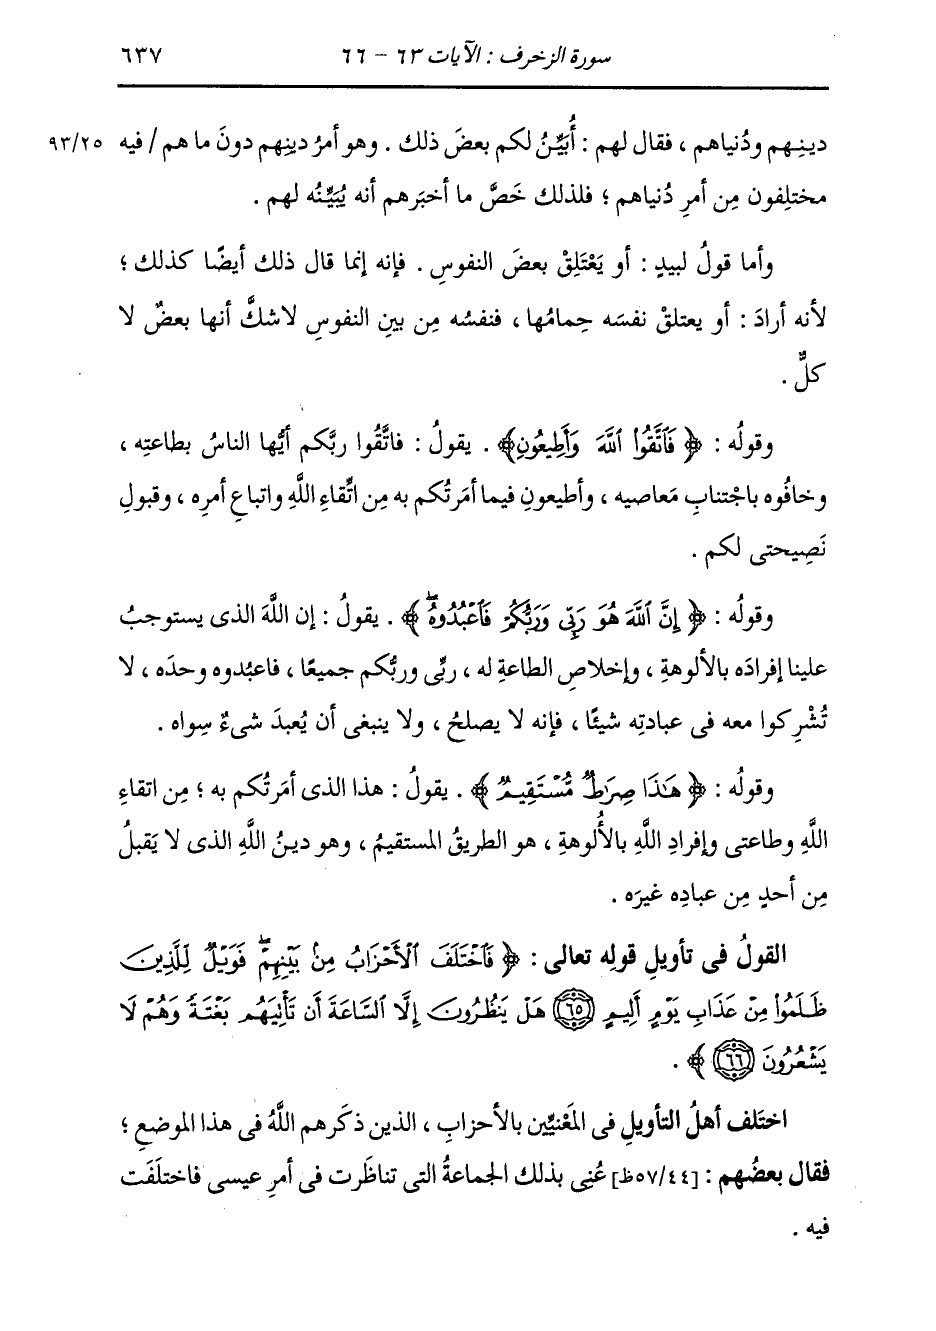 سورة الزخرف : الآيات ٦٣ - ٦٦ ٦٣٧
دينِهم ودُنياهم ، فقال لهم : أُبَيِّنُ لكم بعضَ ذلك . وهو أمرُ دينِهم دونَ ما هم / فيه ٩٣/٢٥
مختلِفون مِن أمرِ دُنياهم ؛ فلذلك خَصَّ ما أخبَرهم أنه يُبَيِّنُه لهم .
وأما قولُ لبيدٍ : أو يَعْتَلِقْ بعضَ النفوسِ . فإنه إنما قال ذلك أيضًا كذلك ؛
لأنه أرادَ : أو يعتلقْ نفسَه حِمامُها ، فنفسُه مِن بينِ النفوسِ لاشكَّ أنها بعضٌ لا
كلٌّ .
وقولُه : ﴿ فَٱتَّقُوا۟ ٱللَّهَ وَأَطِيعُونِ﴾ . يقولُ : فاتَّقُوا ربَّكم أيُّها الناسُ بطاعتِه ،
وخافُوه باجْتنابِ مَعاصيه ، وأطيعونِ فيما أمَرتُكم به مِن اتِّقاءِ اللَّهِ واتباعِ أمرِه ، وقبولِ
نَصِيحتى لكم .
وقولُه : ﴿ إِنَّ ٱللَّهَ هُوَ رَبِّى وَرَبُّكُمْ فَٱعْبُدُوهُۚ ﴾ . يقولُ : إن اللَّهَ الذى يستوجبُ
علينا إفرادَه بالألوهةِ ، وإخلاصِ الطاعةِ له ، ربِّى وربُّكم جميعًا ، فاعبُدوه وحدَه ، لا
تُشْرِكوا معه فى عبادتِه شيئًا ، فإنه لا يصلحُ ، ولا ينبغى أن يُعبدَ شىءٌ سِواه .
وقولُه : ﴿ هَٰذَا صِرَٰطٌ مُّسْتَقِيمٌ ﴾ . يقولُ : هذا الذى أمَرتُكم به ؛ مِن اتقاءِ
اللَّهِ وطاعتى وإفرادِ اللَّهِ بالأُلوهةِ ، هو الطريقُ المستقيمُ ، وهو دينُ اللَّهِ الذى لا يَقبلُ
مِن أحدٍ مِن عبادِه غيرَه .
القولُ فى تأويلِ قولِه تعالى : ﴿ فَٱخْتَلَفَ ٱلْأَحْزَابُ مِنۢ بَيْنِهِمْۖ فَوَيْلٌ لِّلَّذِينَ
ظَلَمُوا۟ مِنْ عَذَابِ يَوْمٍ أَلِيمٍ ٦٥ هَلْ يَنظُرُونَ إِلَّا ٱلسَّاعَةَ أَن تَأْتِيَهُم بَغْتَةً وَهُمْ لَا
يَشْعُرُونَ ٦٦ ﴾ .
اختَلف أهلُ التأويلِ فى المَعْنيِّين بالأحزابِ ، الذين ذكَرهم اللَّهُ فى هذا الموضعِ ؛
فقال بعضُهم : [٥٧/٤٤ظ] عُنِى بذلك الجماعةُ التى تناظَرت فى أمرِ عيسى فاختلَفَت
فيه .